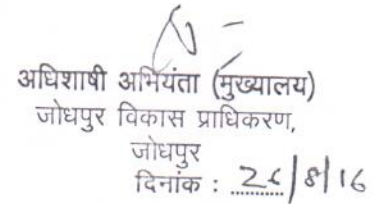 अधिशाषी अभियंता (मुख्यालय)
जोधपुर विकास प्राधिकरण,
जोधपुर
दिनांक : 26/8/16